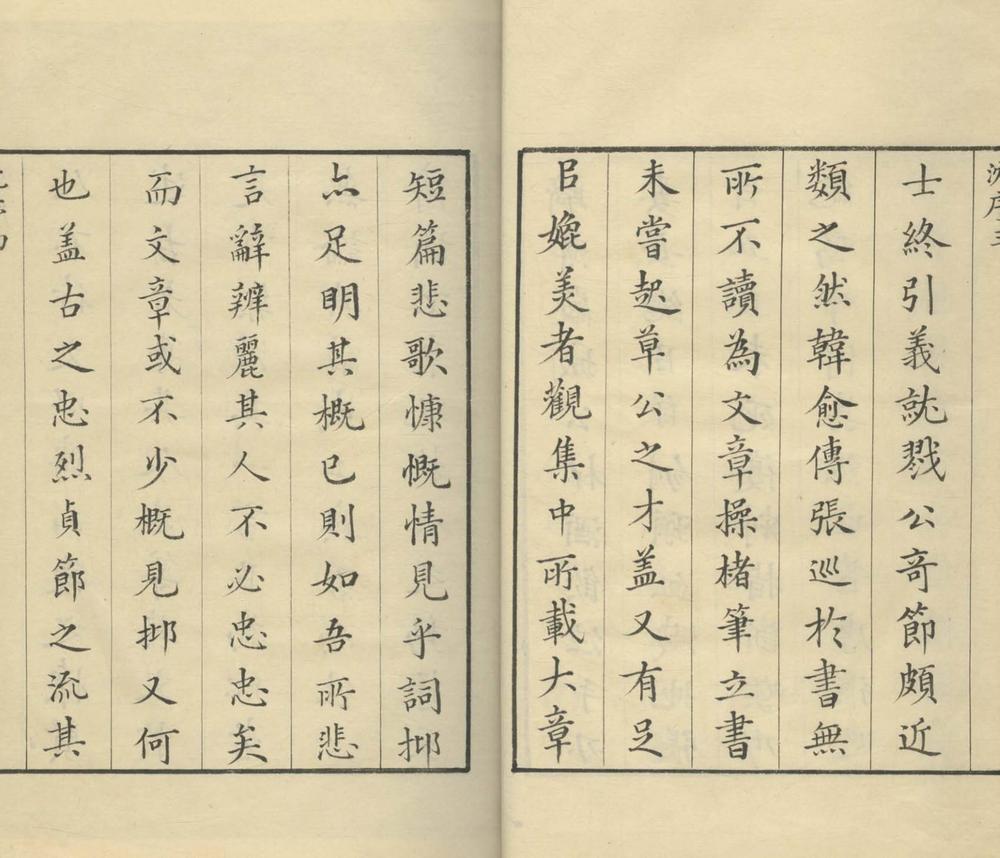 士終引義就戮公奇節頗近
類之然韓愈傳張巡於書無
所不讀為文章操楮筆立書
未嘗起草公之才盖又有足
㠯娩美者觀集中所載大章
短篇悲歌慷慨情見乎詞抑
亦足明其概已則如吾所悲
言辭辨麗其人不必忠忠矣
而文章或不少概見抑又何
也盖古之忠烈貞節之流其